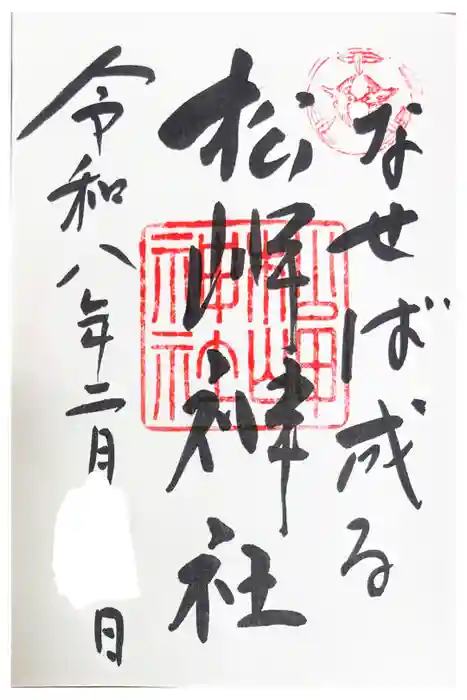 なせば成る
松岬神社
松岬神社
令和八年二月 日